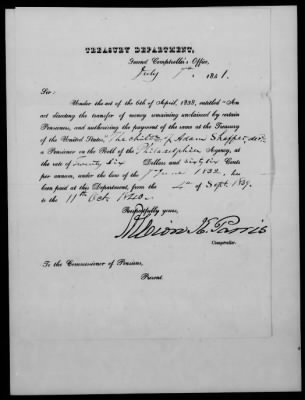 TREASURY DEPARTMENT,
Second Comptroller's Office,
July 7th 1841.
Sir:
Under the act of the 6th of April, 1838, entitled "An
act directing the transfer of money remaining unclaimed by certain
Pensioners, and authorizing the payment of the same at the Treasury
of the United States," The children of Adam Shaffer, dec'd
Pensioner on the Roll of the Philadelphia Agency, at
the rate of Twenty Six Dollars and sixty six Cents
per annum, under the law of the 7 June 1832, has
been paid at this Department, from the 4th of Sept. 1839.
to the 11th Oct. 1840.
Respectfully yours,
Albion K. Parris
Comptroller.
To the Commissioner of Pensions,
Present.